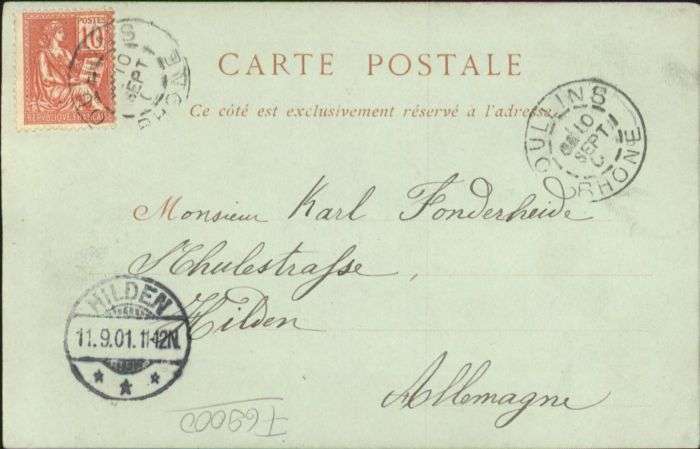 POSTES
10
REPUBLIQUE FRANCAISE
CARTE POSTALE
Ce côté est exclusivement réservé à l'adresse
OULLINS
10
SEPT
RHONE
Monsieur Karl Fonderheide
Schulestrasse,
Hilden
Allemagne
HILDEN
11.9.01. 11-12N.